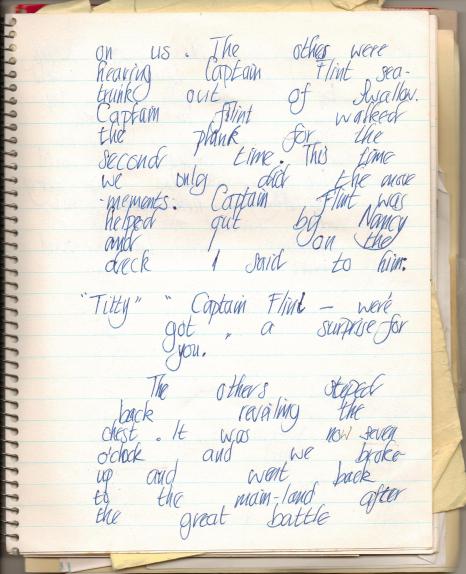 on us. The others were
hearing Captain Flint sea-
trunk out of Swallow.
Captain Flint walked
the plank for the
second time. This time
we only did the move
-mements. Captain Flint was
helped out by Nancy
and on the
deck I said to him:
"Titty" " Captain Flint – we've
got " a surprise for
you.
The others steped
back revailing the
chest. It was now seven
o'clock and we broke
up and went back
to the main-land after
the great battle